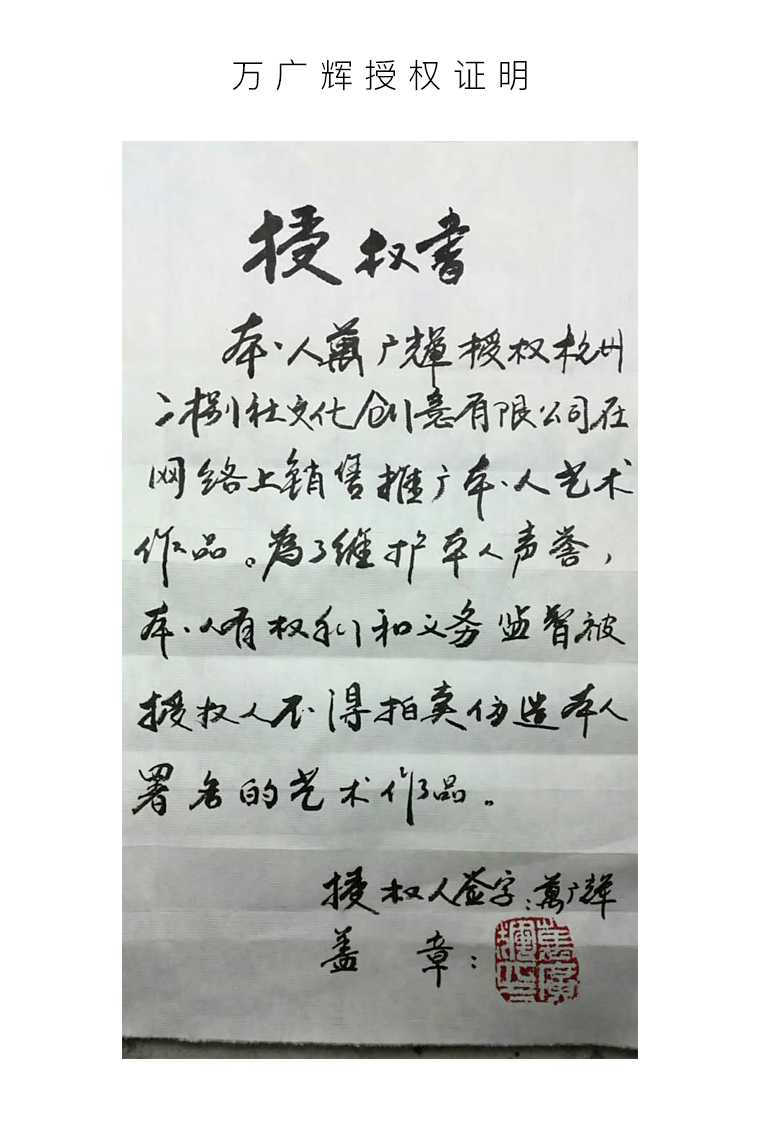 万广辉授权证明
授权书
本人萬广輝授权杭州
二捌社文化创意有限公司在
网络上销售推广本人艺术
作品。為了维护本人声誉，
本人有权利和义务监督被
授权人不得拍卖伪造本人
署名的艺术作品。
授权人签字：萬广輝
盖章：
萬廣輝印